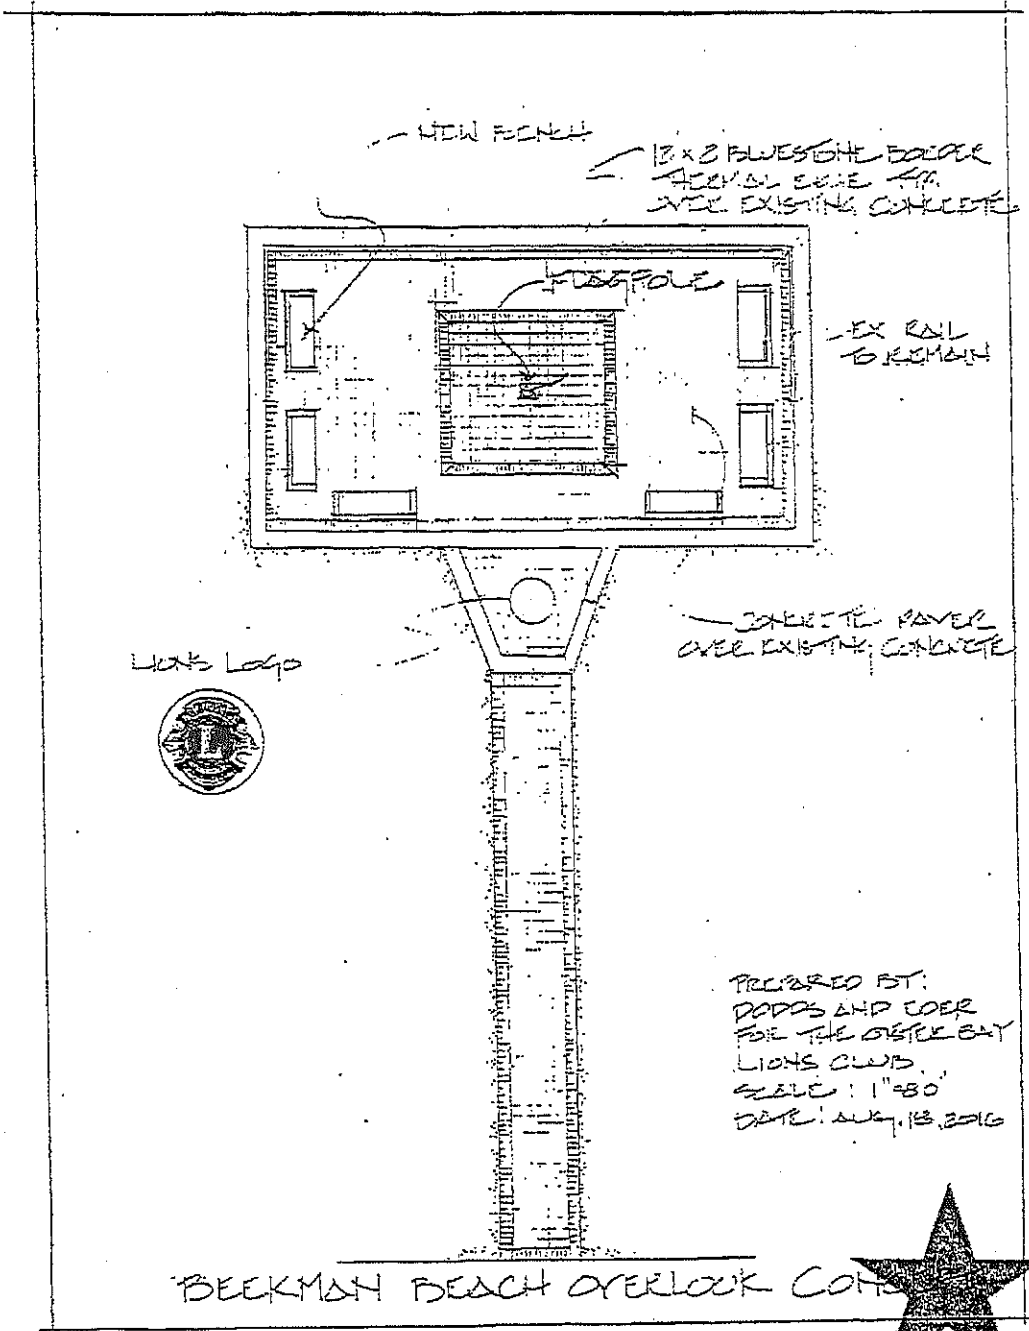 NEW BENCH
12 x 2 BLUESTONE BORDER
THERMAL EDGE
OVER EXISTING CONCRETE
FLAGPOLE
EX RAIL
TO REMAIN
CONCRETE PAVER
OVER EXISTING CONCRETE
LIONS LOGO
L
PREPARED BY:
DODDS AND EDER
FOR THE OYSTER BAY
LIONS CLUB
SCALE: 1"=80'
DATE: AUG. 18, 2016
BEEKMAN BEACH OVERLOOK CON